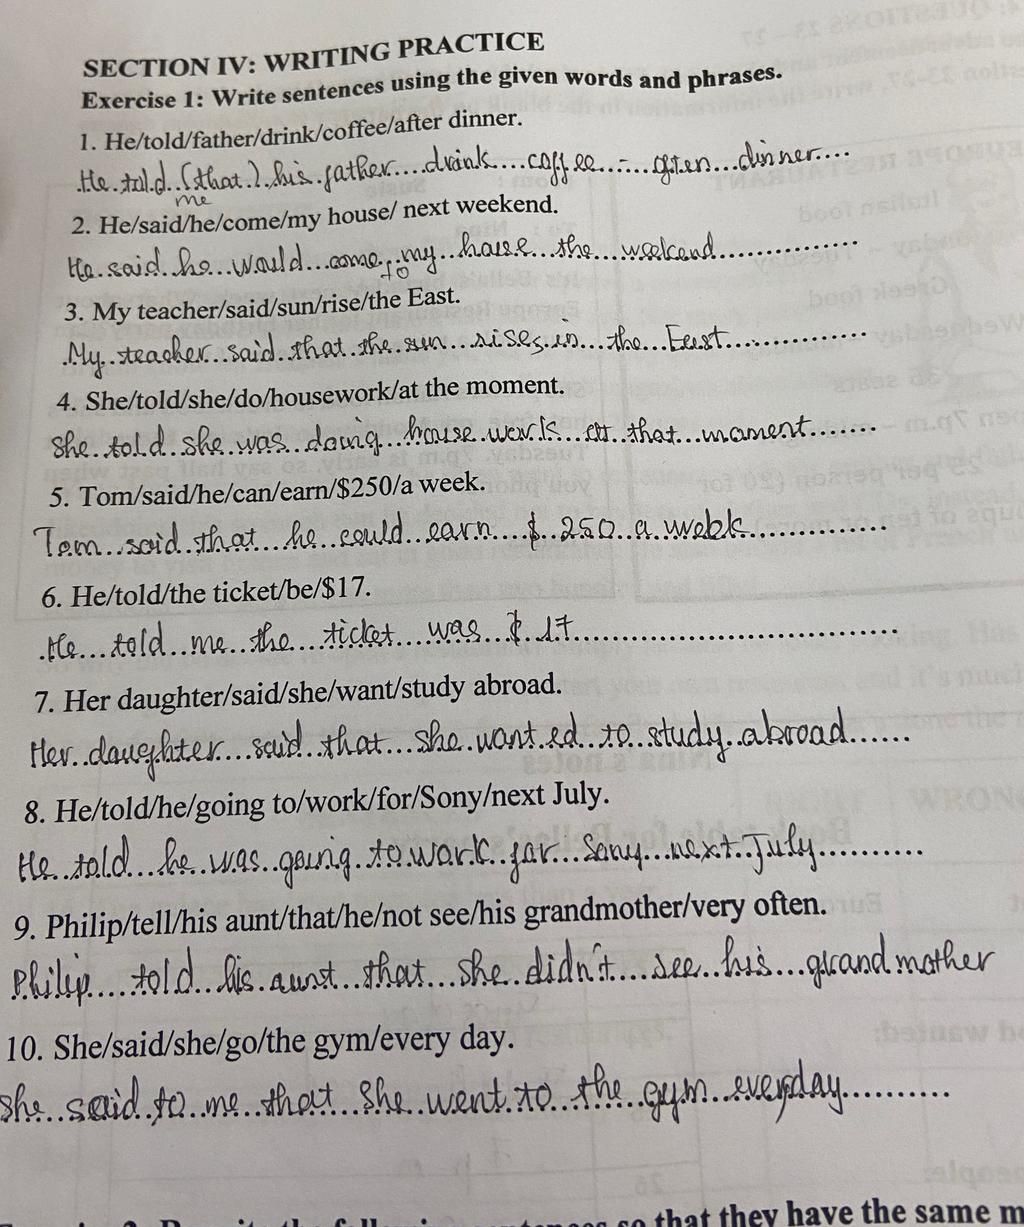 SECTION IV: WRITING PRACTICE
Exercise 1: Write sentences using the given words and phrases.
1. He/told/father/drink/coffee/after dinner.
He told (that) his father drink coffee after dinner
me
2. He/said/he/come/my house/ next weekend.
He said he would come to my house the weekend
3. My teacher/said/sun/rise/the East.
My teacher said that the sun rises in the East
4. She/told/she/do/housework/at the moment.
She told she was doing house work at that moment
5. Tom/said/he/can/earn/$250/a week.
Tom said that he could earn $ 250 a week
6. He/told/the ticket/be/$17.
He told me the ticket was $ 17
7. Her daughter/said/she/want/study abroad.
Her daughter said that she wanted to study abroad
8. He/told/he/going to/work/for/Sony/next July.
He told he was going to work for Sony next July
9. Philip/tell/his aunt/that/he/not see/his grandmother/very often.
Philip told his aunt that she didn't see his grandmother
10. She/said/she/go/the gym/every day.
She said to me that she went to the gym everyday
so that they have the same m